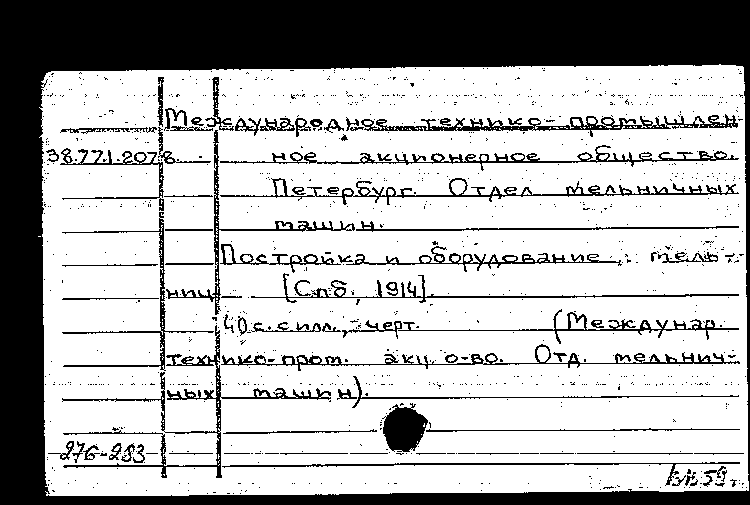 Международное технико-промышлен-
38.77.1.2078. ное акционерное общество.
Петербург. Отдел мельничных
машин.
Постройка и оборудование мель-
ниц. [Спб., 1914].
40 с. с илл., черт. (Междунар.
технико-пром. акц. о-во. Отд. мельнич-
ных машин).
276-283